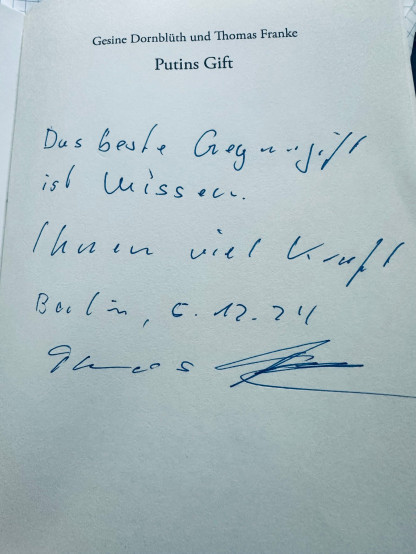 Gesine Dornblüth und Thomas Franke
Putins Gift
Das beste Gegengift
ist Wissen.
Ihnen viel Kraft
Berlin, 6.12.24
Thomas